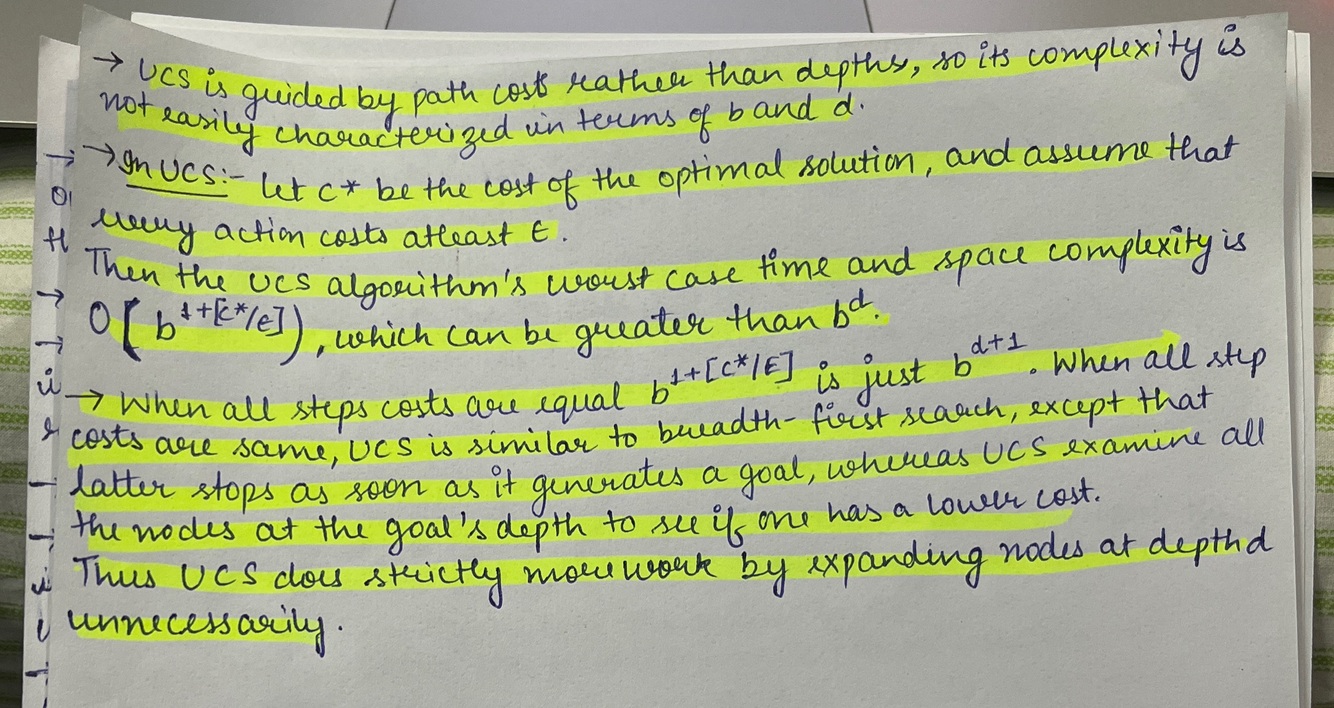 → UCS is guided by path costs rather than depths, so its complexity is
not easily characterized in terms of b and d.
→ In UCS:- Let C* be the cost of the optimal solution, and assume that
every action costs atleast ϵ.
Then the UCS algorithm's worst case time and space complexity is
O(b^{1+[C*/ϵ]}), which can be greater than b^d.
→ When all steps costs are equal b^{1+[C*/ϵ]} is just b^{d+1}. When all step
costs are same, UCS is similar to breadth-first search, except that
latter stops as soon as it generates a goal, whereas UCS examine all
the nodes at the goal's depth to see if one has a lower cost.
Thus UCS does strictly more work by expanding nodes at depth d
unnecessarily.